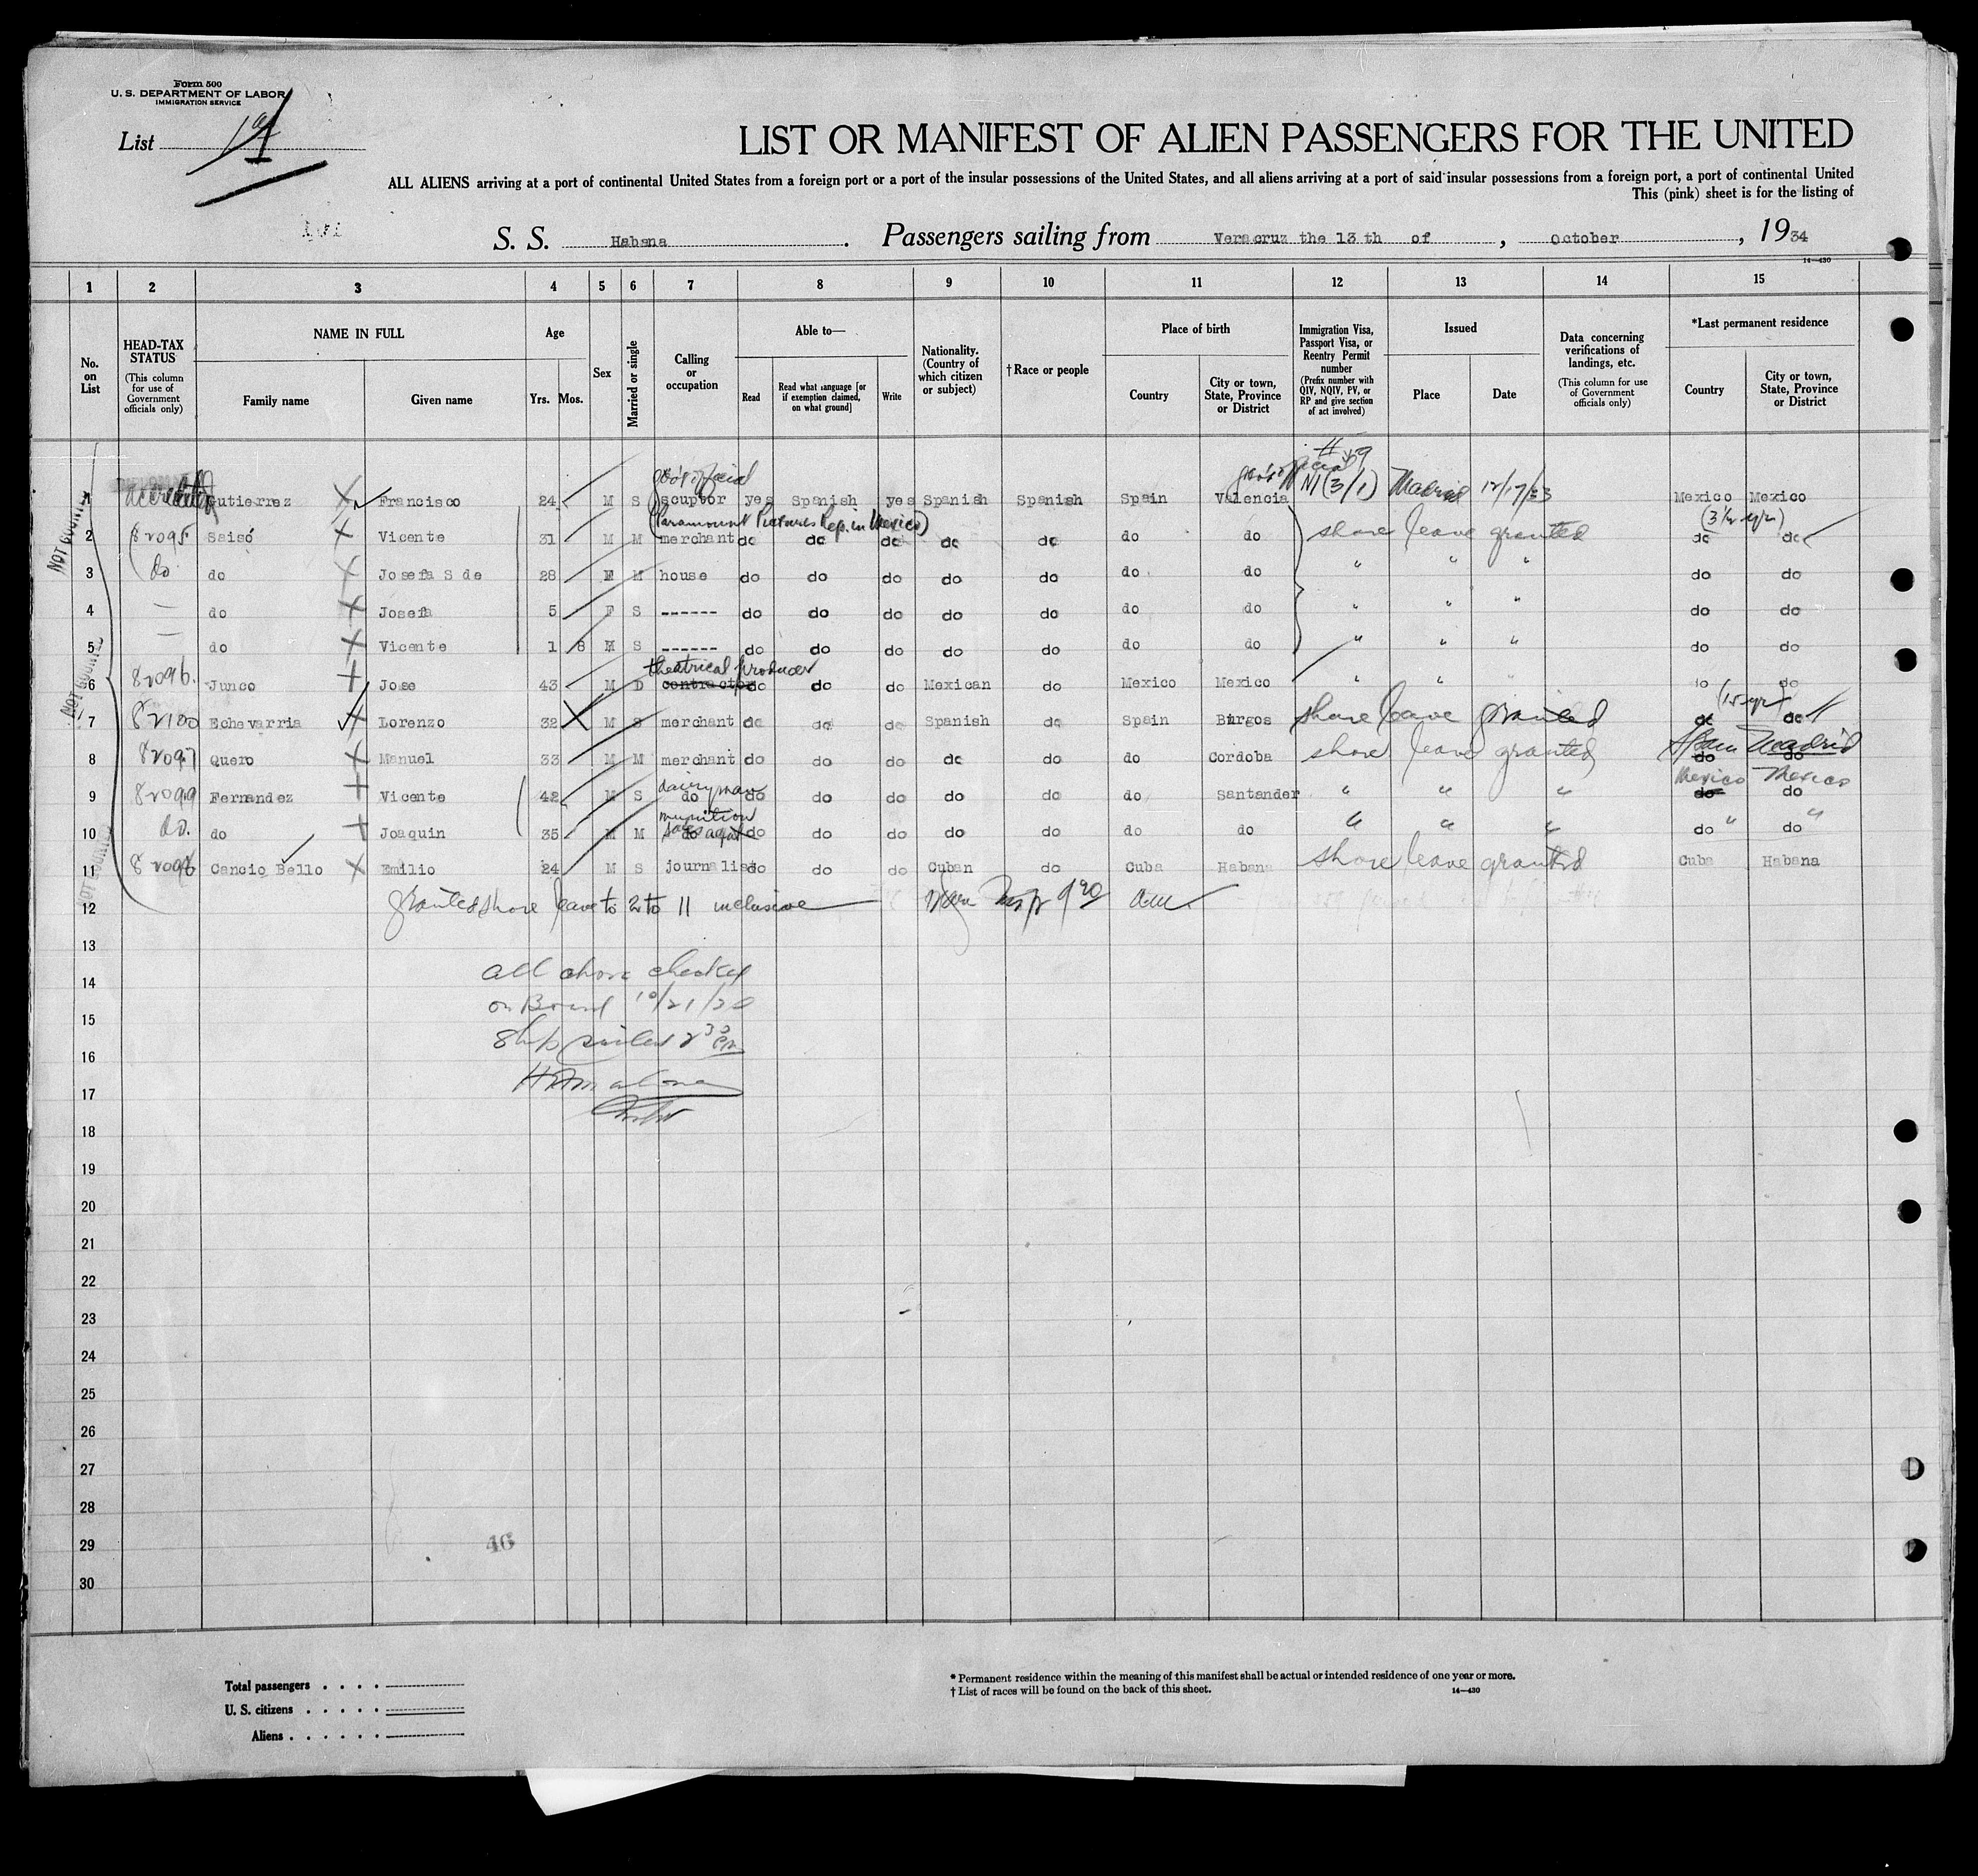 Form 500
U. S. DEPARTMENT OF LABOR
IMMIGRATION SERVICE
List
LIST OR MANIFEST OF ALIEN PASSENGERS FOR THE UNITED
ALL ALIENS arriving at a port of continental United States from a foreign port or a port of the insular possessions of the United States, and all aliens arriving at a port of said insular possessions from a foreign port, a port of continental United
This (pink) sheet is for the listing of
S. S. Habana. Passengers sailing from Veracruz the 13 th of, October, 1934
14—430
1 2 3 4 5 6 7 8 9 10 11 12 13 14 15
No. on List
HEAD-TAX STATUS (This column for use of Government officials only)
NAME IN FULL Family name Given name
Age Yrs. Mos.
Sex
Married or single
Calling or occupation
Able to— Read Read what language [or if exemption claimed, on what ground] Write
Nationality. (Country of which citizen or subject)
†Race or people
Place of birth Country City or town, State, Province or District
Immigration Visa, Passport Visa, or Reentry Permit number (Prefix number with QIV, NQIV, PV, or RP and give section of act involved)
Issued Place Date
Data concerning verifications of landings, etc. (This column for use of Government officials only)
*Last permanent residence Country City or town, State, Province or District
NOT COUNTED
gov't official
1 Gutierrez Francisco 24 M S scuptor yes Spanish yes Spanish Spanish Spain Valencia gov't official (3/1) Madrid 12/17/33 Mexico Mexico
(Paramount Pictures Rep. in Mexico) (3½ yrs)
2 82095 Saisó Vicente 31 M M merchant do do do do do do do shore leave granted do do
3 do do Josefa S de 28 F M house do do do do do do do " " " do do
4 — do Josefa 5 F S ------ do do do do do do do " " " do do
5 — do Vicente 1 8 M S ------ do do do do do do do " " " do do
theatrical producer
6 82096. Junco Jose 43 M D contractor do do do Mexican do Mexico Mexico " " " do do
(15 yrs)
7 82100 Echevarria Lorenzo 32 M S merchant do do do Spanish do Spain Burgos shore leave granted do do
Spain Madrid
8 82097 Quero Manuel 33 M M merchant do do do do do do Cordoba shore leave granted do do
dairyman Mexico Mexico
9 82099 Fernandez Vicente 42 M S do do do do do do do Santander " " " do do
munition
10 do. do Joaquin 35 M M do sales agt do do do do do do do " " " do " do "
11 82098 Cancio Bello Emilio 24 M S journalist do do do Cuban do Cuba Habana shore leave granted Cuba Habana
12 granted shore leave to 2 to 11 inclusive
13
14 all above checked
15 on Board
16 Ship sailed 2 30 PM
17
18
19
20
21
22
23
24
25
26
27
28
29
46
30
Total passengers
U. S. citizens
Aliens
*Permanent residence within the meaning of this manifest shall be actual or intended residence of one year or more.
†List of races will be found on the back of this sheet.
14—430